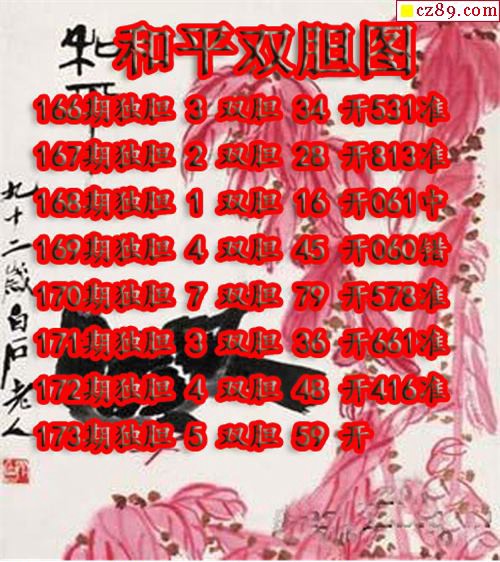 cz89.com
和平双胆图
166期独胆 3 双胆 34 开531准
167期独胆 2 双胆 28 开813准
168期独胆 1 双胆 16 开061中
169期独胆 4 双胆 45 开060错
170期独胆 7 双胆 79 开578准
171期独胆 3 双胆 36 开661准
172期独胆 4 双胆 48 开416准
173期独胆 5 双胆 59 开
和平
九十二岁白石老人